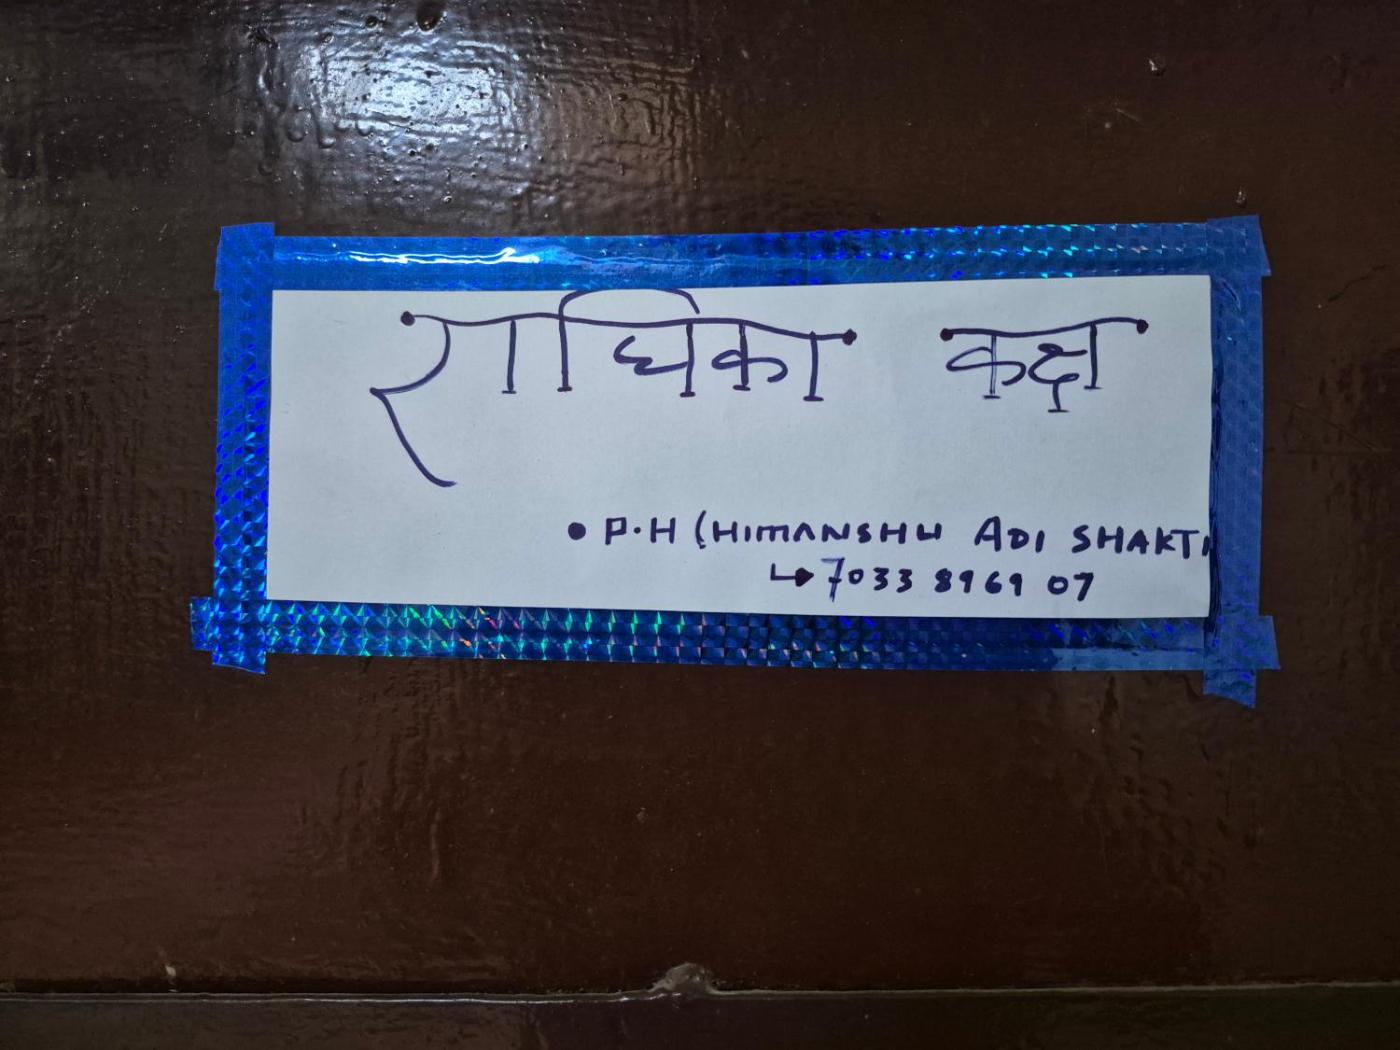 राधिका कक्ष
• P.H (HIMANSHU ADI SHAKTI
↳ 7033 8969 07